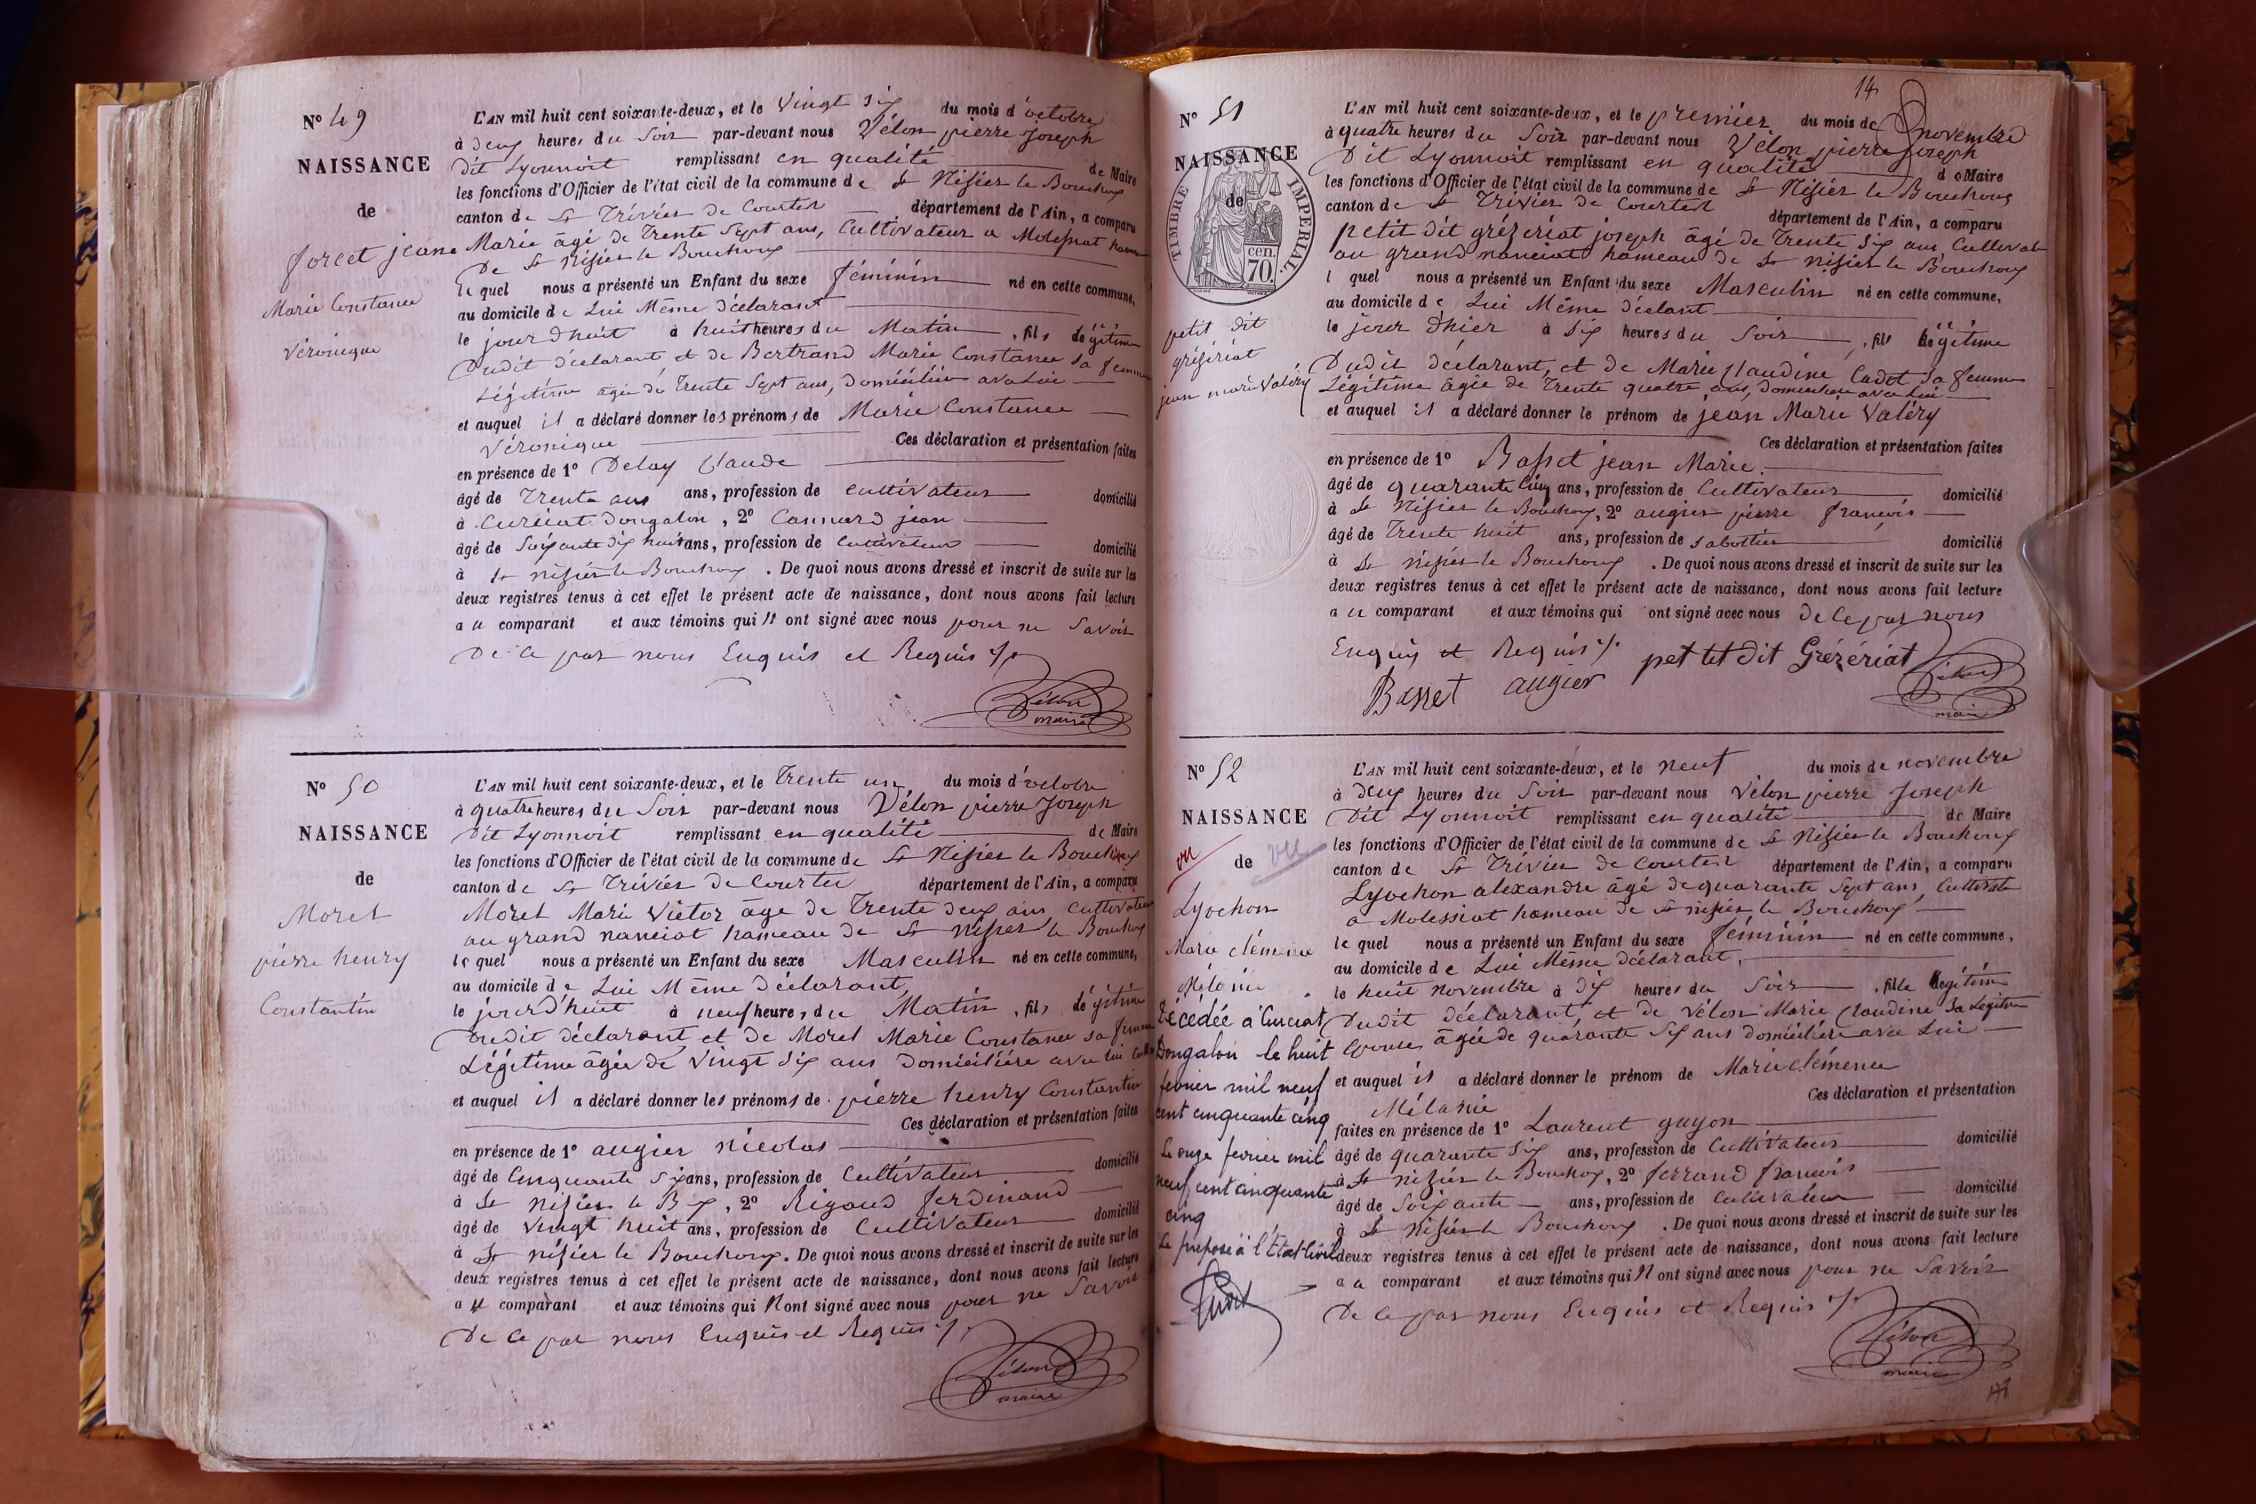 N° 49
NAISSANCE
de
forest jeane
Marie Constance
Véronique
L'AN mil huit cent soixante-deux, et le Vingt Six du mois d'octobre
à deux heures du Soir par-devant nous Vélon pierre Joseph
Dit Lyonnoit remplissant en qualité de Maire
les fonctions d'Officier de l'état civil de la commune de St Nisier le Bouchoux
canton de St Trivier de Courtes département de l'Ain, a comparu
Marie âgé de Trente Sept ans, Cultivateur a
De St Nisier le Bouchoux
le quel nous a présenté un Enfant du sexe féminin né en cette commune,
au domicile de Lui Même déclarant
le jourd'huit à huit heures du Matin, fils légitime
Dudit déclarant et de Bertrand Marie Constance Sa femme
Légitime âgée de Trente Sept ans, Domiciliée avec Lui
et auquel il a déclaré donner les prénoms de Marie Constance
Véronique Ces déclaration et présentation faites
en présence de 1° Delay Claude
âgé de Trente ans ans, profession de cultivateur domicilié
à Curciat Dongalon, 2° Cannard jean
âgé de Soixante dix huit ans, profession de Cultivateur domicilié
à St Nisier le Bouchoux. De quoi nous avons dressé et inscrit de suite sur les
deux registres tenus à cet effet le présent acte de naissance, dont nous avons fait lecture
au comparant et aux témoins qui n ont signé avec nous pour ne Savoir
De ce par nous Enquis et Requis
Vélon
maire
N° 50
NAISSANCE
de
Morel
pierre henry
Constantin
L'AN mil huit cent soixante-deux, et le Trente un du mois d'octobre
à quatre heures du Soir par-devant nous Vélon pierre Joseph
Dit Lyonnoit remplissant en qualité de Maire
les fonctions d'Officier de l'état civil de la commune de St Nisier le Bouchoux
canton de St Trivier de Courtes département de l'Ain, a comparu
Morel Marie Victor âge de Trente deux ans, cultivateur
au grand nanciat hameau de St nisier le Bouchoux
le quel nous a présenté un Enfant du sexe Masculin né en cette commune,
au domicile de Lui Même déclarant,
le jourd'huit à neuf heures du Matin, fils légitime
Dudit déclarant et de Morel Marie Constance Sa femme
Légitime âgée de Vingt Six ans Domiciliée avec Lui
et auquel il a déclaré donner les prénoms de pierre henry Constantin
Ces déclaration et présentation faites
en présence de 1° augier nicolas
âgé de Cinquante Six ans, profession de Cultivateur domicilié
à St Nisier le Bx, 2° Rigaud ferdinand
âgé de Vingt huit ans, profession de Cultivateur domicilié
à St nisier le Bouchoux. De quoi nous avons dressé et inscrit de suite sur les
deux registres tenus à cet effet le présent acte de naissance, dont nous avons fait lecture
au comparant et aux témoins qui n ont signé avec nous pour ne Savoir
De ce par nous Enquis et Requis
Vélon
maire
14
N° 51
NAISSANCE
de
TIMBRE IMPERIAL.
cen. 70.
petit dit
grézériat
jean marie Valéry
L'AN mil huit cent soixante-deux, et le premier du mois de novembre
à quatre heures du Soir par-devant nous Vélon pierre Joseph
Dit Lyonnoit remplissant en qualité de Maire
les fonctions d'Officier de l'état civil de la commune de St Nisier le Bouchoux
canton de St Trivier de Courtes département de l'Ain, a comparu
petit dit grézériat joseph âgé de Trente Six ans, Cultivat
au grand nanciat hameau de St nisier le Bouchoux
l quel nous a présenté un Enfant du sexe Masculin né en cette commune,
au domicile de Lui Même déclarant
le jour D'hier à Six heures du Soir, fils légitime
Dudit déclarant, et de Marie Claudine Cadet Sa femme
Légitime âgée de Trente quatre ans, Domiciliée avec Lui
et auquel il a déclaré donner le prénom de jean Marie Valéry
Ces déclaration et présentation faites
en présence de 1° Basset jean Marie
âgé de quarante Cinq ans, profession de Cultivateur domicilié
à St Nisier le Bouchoux, 2° augier pierre françois
âgé de Trente huit ans, profession de Sabottier domicilié
à St Nisier le Bouchoux. De quoi nous avons dressé et inscrit de suite sur les
deux registres tenus à cet effet le présent acte de naissance, dont nous avons fait lecture
au comparant et aux témoins qui ont signé avec nous De ce par nous
Enquis et Requis petit dit Grézériat
Basset augier Vélon
maire
N° 52
NAISSANCE
de
vu vu
Lyochon
Marie clémence
Mélanie
Décédée à Curciat
Dongalon le huit
février mil neuf
cent cinquante cinq
Le onze février mil
neuf cent cinquante
cinq
Le préposé à l'État-Civil
L'AN mil huit cent soixante-deux, et le neuf du mois de novembre
à deux heures du Soir par-devant nous Vélon pierre Joseph
Dit Lyonnoit remplissant en qualité de Maire
les fonctions d'Officier de l'état civil de la commune de St Nisier le Bouchoux
canton de St Trivier de Courtes département de l'Ain, a comparu
Lyochon alexandre âgé de quarante Sept ans, Cultivat
a Molessiat hameau de St nisier le Bouchoux
le quel nous a présenté un Enfant du sexe féminin né en cette commune,
au domicile de Lui Même déclarant,
le huit novembre à dix heures du Soir, fille légitime
Dudit déclarant, et de Vélon Marie Claudine Sa Légitime
Epouse âgée de quarante Six ans domiciliée avec Lui
et auquel il a déclaré donner le prénom de Marie clémence
Mélanie Ces déclaration et présentation
faites en présence de 1° Laurent guyon
âgé de quarante Six ans, profession de Cultivateur domicilié
à St nisier le Bouchoux, 2° ferrand françois
âgé de Soixante ans, profession de Cultivateur domicilié
à St Nisier le Bouchoux. De quoi nous avons dressé et inscrit de suite sur les
deux registres tenus à cet effet le présent acte de naissance, dont nous avons fait lecture
au comparant et aux témoins qui n ont signé avec nous pour ne Savoir
De ce par nous Enquis et Requis
Vélon
maire